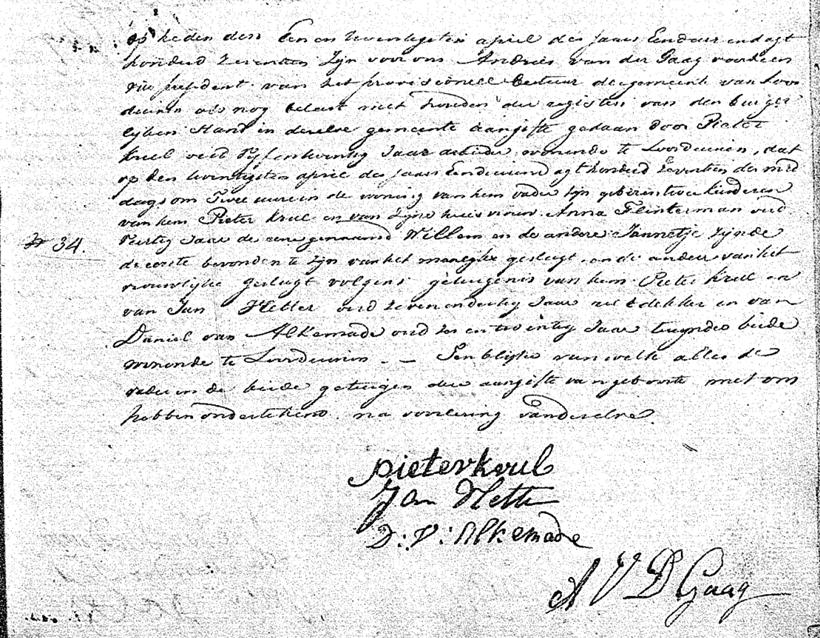 op heden den Een en twentigsten april des jaars Eenduizendagt
honderd Zeventien zijn voor ons Andries van der Gaag voorheen
vice president van het provisioneel bestuur der gemeente van Loos
duinen als nog belast met houden der registers van den burger
lijken Stand in dezelve gemeente aangifte gedaan door Pieter
Krul oud Vyfentwintig Jaar arbeider wonende te Loosduinen, dat
op den twintigsten april des jaars Eenduizend agt honderd Zeventien des mid
dags om Twee uure in de woning van hem vader zijn geboren twee kinderen
van hem Pieter Krul en van zijne huisvrouw Anna Flinterman oud
Veertig Jaar de eene genaamd Willem en de andere Jannetje zijnde
N 34.
de eerste bevonden te zijn van het manlijke geslagt en de andere van het
vrouwlijke geslagt volgens getuigenis van hem Pieter Krul en
van Jan Hette oud zevenendertig Jaar rietdekker en van
Daniel van Alkemade oud zes en twintig Jaar beide
wonende te Loosduinen. — Ten blijke van welk alles de
vader en de beide getuigen de aangifte van geboorte met ons
hebben ondertekend na voorlezing van dezelve.
pieter krul
Jan Hette
D: V: Alkemade
A V D Gaag